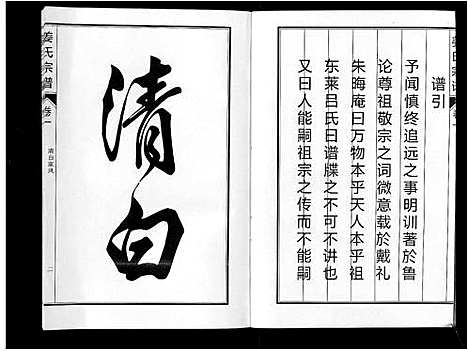 谱引
予闻慎终追远之事明训著於鲁
论尊祖敬宗之词微意载於戴礼
朱晦庵曰万物本乎天人本乎祖
东莱吕氏曰谱牒之不可不讲也
又曰人能嗣祖宗之传而不能嗣
姜氏宗谱
卷一
清白家风
二
清白